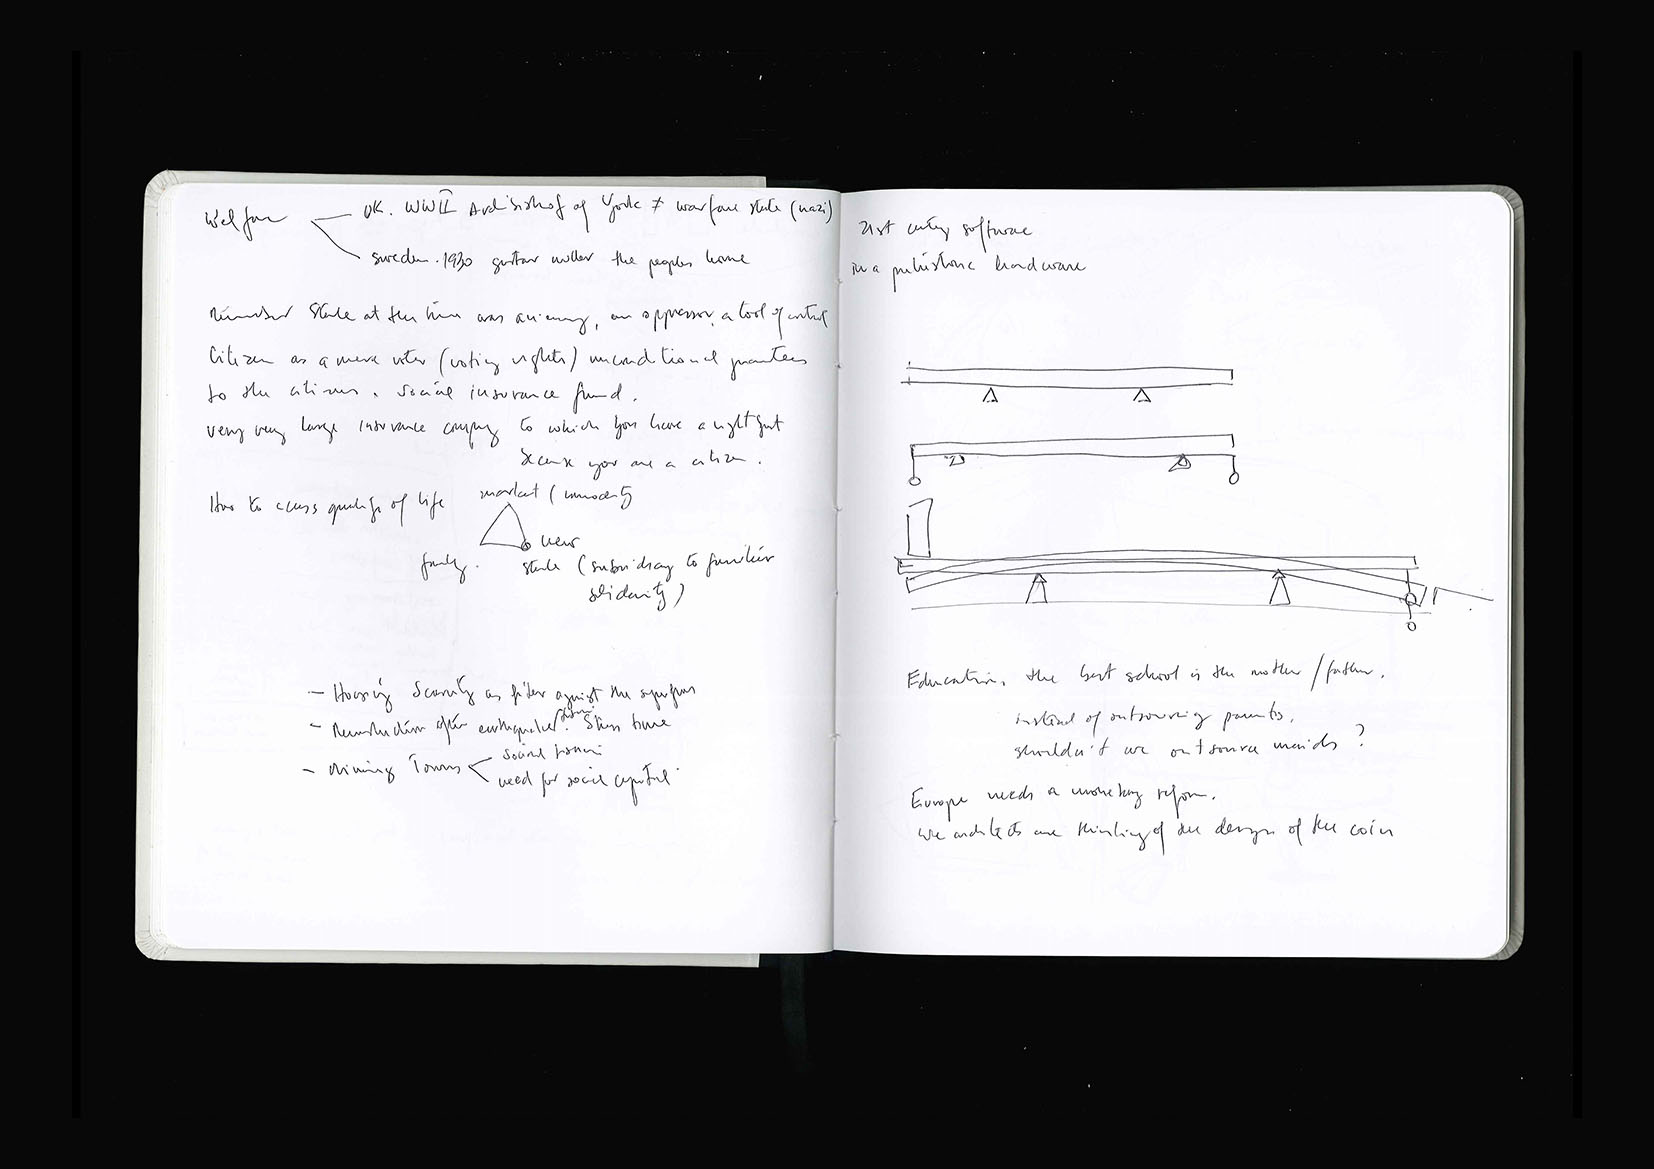 Welfare
UK. WWII Archbishop of York ≠ warfare state (nazi)
Sweden. 1930 gustav moller the peoples home
State at the time was an enemy, an oppressor, a tool of control
Citizen as a mere voter (voting rights) unconditional guarantees
to the citizens. Social insurance fund.
very very large insurance company to which you have a right just
because you are a citizen.
How to access quality of life
market (
new
family.
state (subsidiary to familiar
solidarity)
- Housing Scarcity as filter against the
- Reconstruction after earthquake. Stress time
- Mining Towns
social
need for social capital.
21st century software
in a prehistoric hardware
Education, the best school is the mother/father.
instead of outsourcing parents,
shouldn't we outsource maids?
Europe needs a monetary reform.
We architects are thinking of the design of the coin